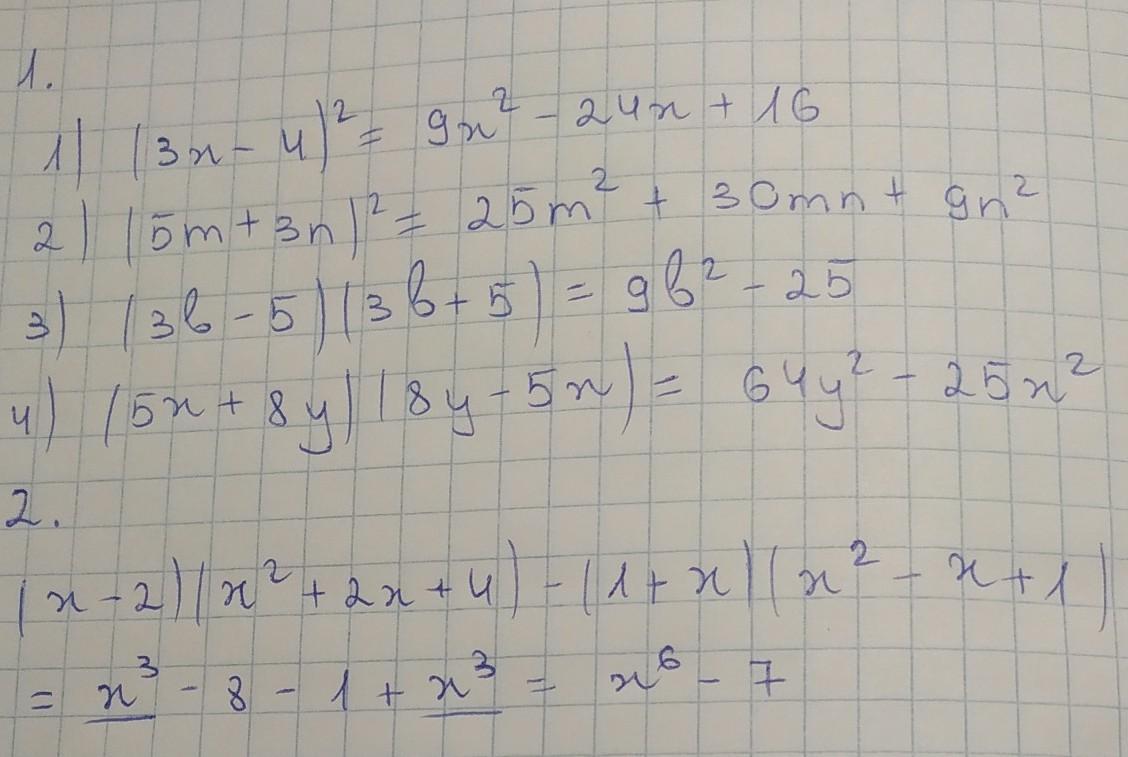 1.
1) (3x - 4)² = 9x² - 24x + 16
2) (5m + 3n)² = 25m² + 30mn + 9n²
3) (3b - 5)(3b + 5) = 9b² - 25
4) (5x + 8y)(8y - 5x) = 64y² - 25x²
2.
(x - 2)(x² + 2x + 4) - (1 + x)(x² - x + 1)
= x³ - 8 - 1 + x³ = x⁶ - 7